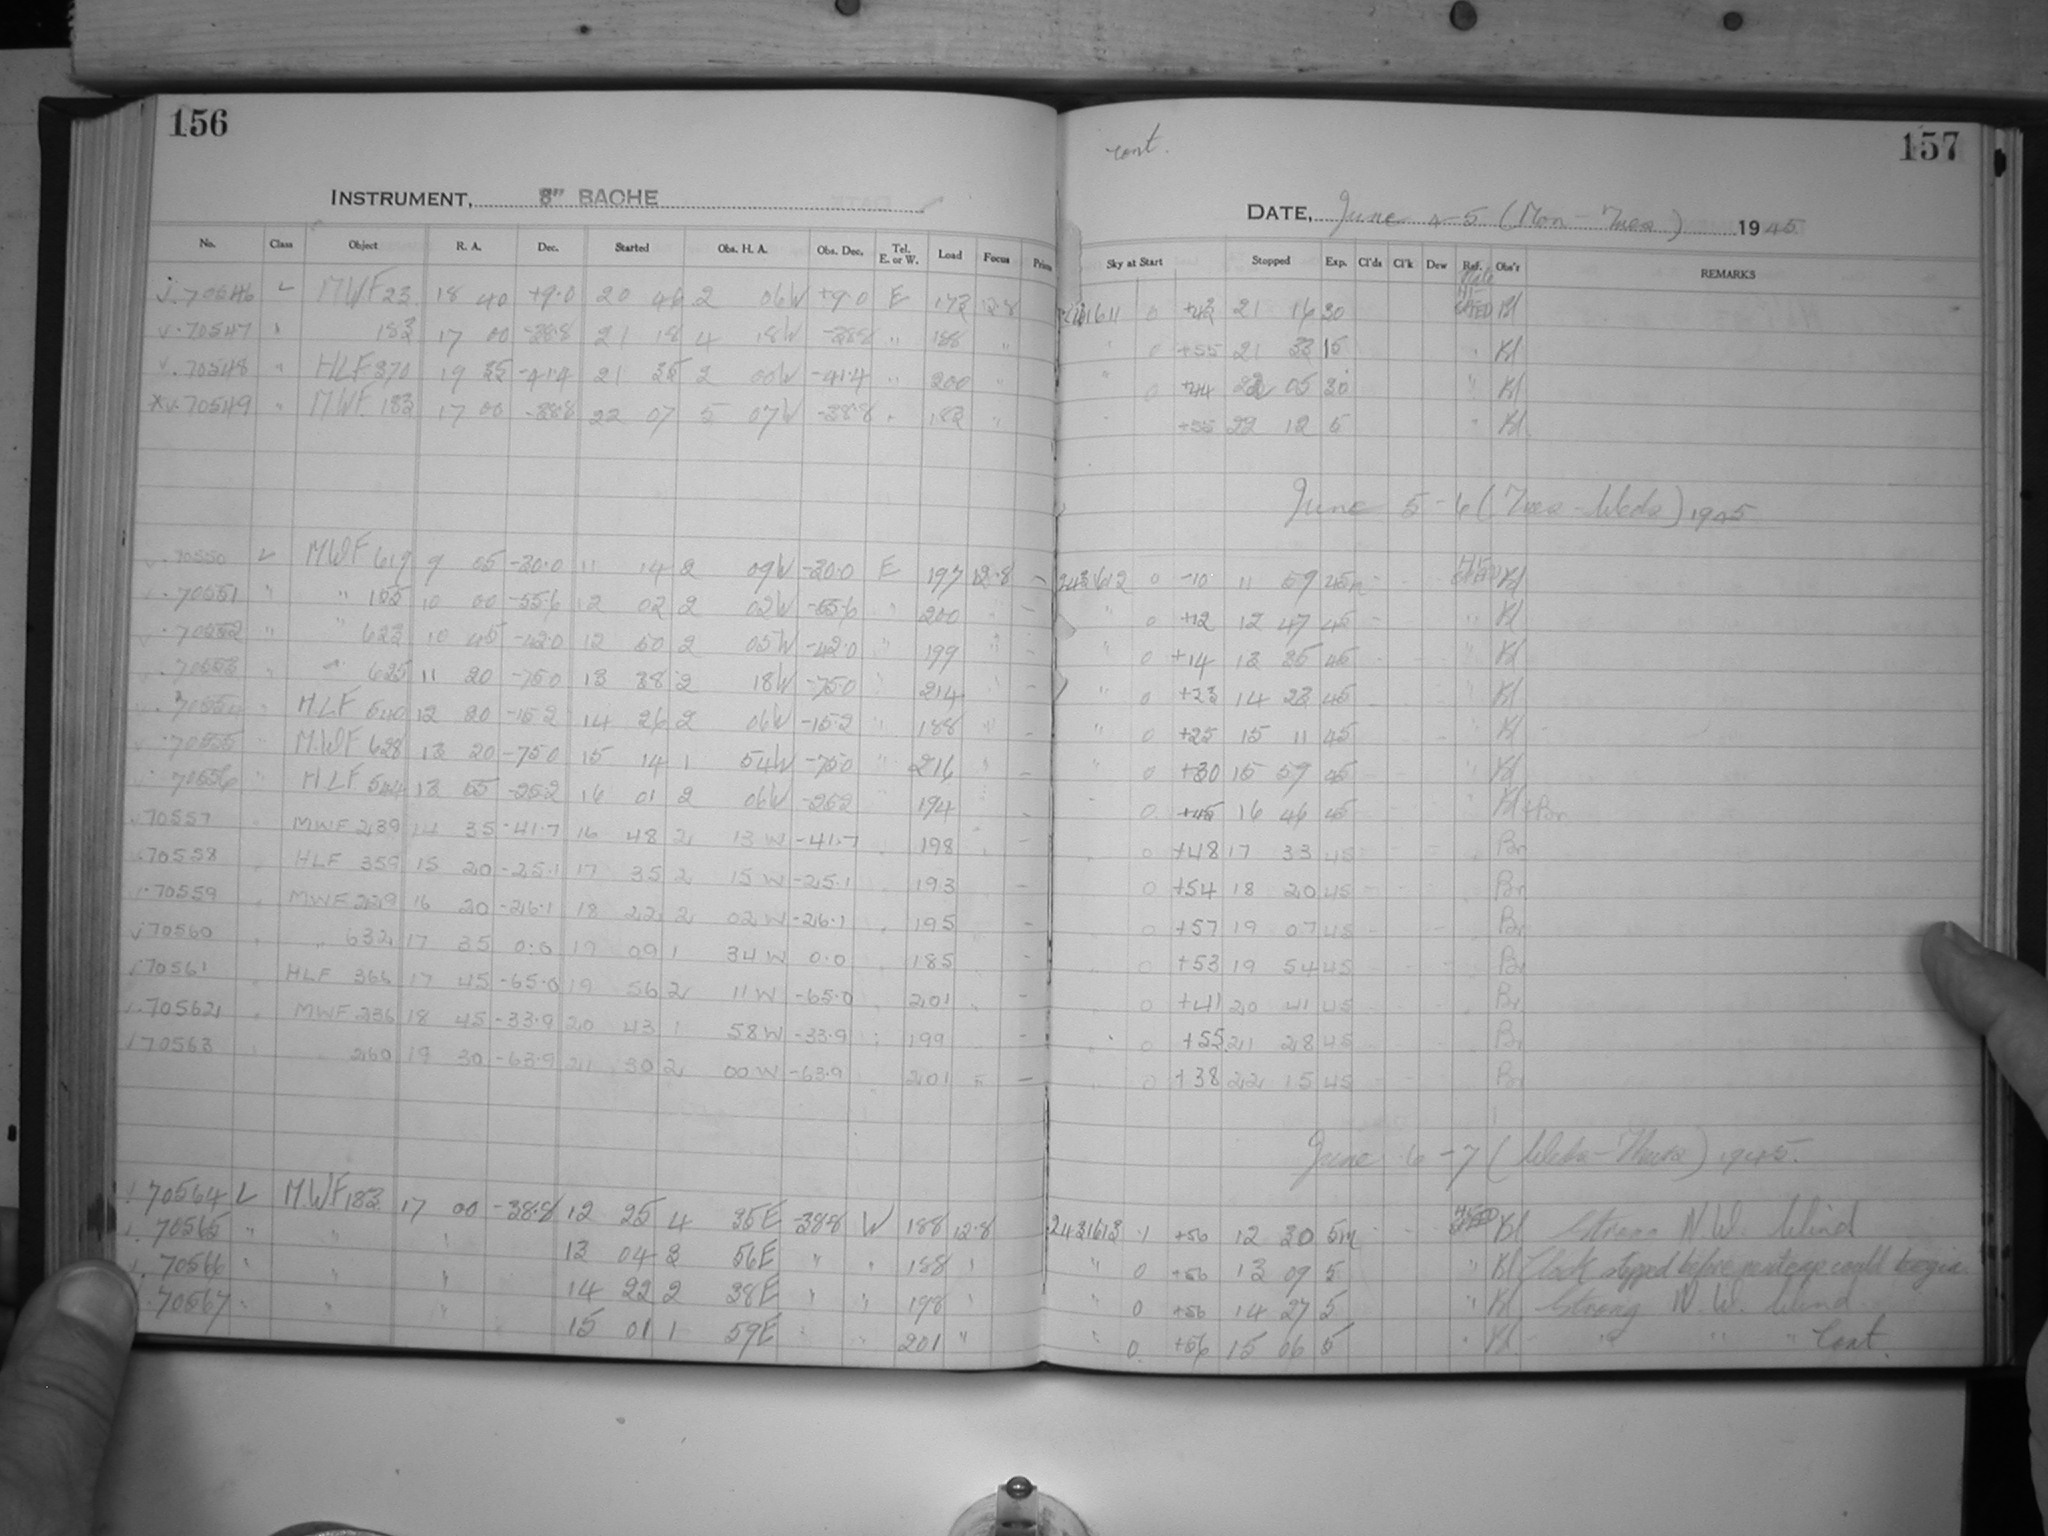 156
INSTRUMENT, 8" BACHE
No. Class Object R. A. Dec. Started Obs. H. A. Obs. Dec. Tel. E. or W. Load Focus Prism
70546 L MWF 23 18 40 +9.0 20 46 2 06W +9.0 E 173 12.8
70547 " 183 17 00 -38.8 21 18 4 18W -38.8 " 188 "
70548 " HLF 370 19 35 -41.4 21 35 2 00W -41.4 " 200 "
70549 " MWF 183 17 00 -38.8 22 07 5 07W -38.8 " 183 "
70550 L MWF 619 9 05 -30.0 11 14 2 09W -30.0 E 197 12.8 -
70551 " " 155 10 00 -55.6 12 02 2 02W -55.6 " 200 -
70552 " " 622 10 45 -42.0 12 50 2 05W -42.0 " 199 " -
70553 " " 625 11 20 -75.0 13 38 2 18W -75.0 " 214 " -
70554 " HLF 540 12 20 -15.2 14 26 2 06W -15.2 " 188 " -
70555 MWF 628 13 20 -75.0 15 14 1 54W -75.0 " 216 " -
70556 " HLF 544 13 55 -25.2 16 01 2 06W -25.2 194 -
70557 MWF 239 14 35 -41.7 16 48 2 13W -41.7 198 -
70558 HLF 359 15 20 -25.1 17 35 2 15W -25.1 193 -
70559 MWF 229 16 20 -26.1 18 22 2 02W -26.1 195 -
70560 " 632 17 35 0.0 19 09 1 34W 0.0 185 -
70561 HLF 366 17 45 -65.0 19 56 2 11W -65.0 201 -
70562 MWF 236 18 45 -33.9 20 43 1 58W -33.9 199 -
70563 260 19 30 -63.9 21 30 2 00W -63.9 201 -
70564 L MWF 183 17 00 -38.8 12 25 4 35E -38.8 W 188 12.8
70565 " " " 13 04 3 56E " " 188 "
70566 " " " 14 22 2 38E " " 198 "
70567 " " " 15 01 1 59E " " 201 "
cont.
157
DATE, June 4-5 (Mon-Tues) 1945
Sky at Start Stopped Exp. Cl'ds Cl'k Dew Ref. Obs'r REMARKS
2431611 0 +43 21 16 30 Bl
" 0 +55 21 33 15 " Bl
" 0 +44 22 05 30 " Bl
" +55 22 12 5 " Bl
June 5-6 (Tues-Weds) 1945
2431612 0 -10 11 59 45m - Bl
" 0 +12 12 47 45 - " Bl
" 0 +14 13 35 45 " Bl
" 0 +23 14 23 45 " Bl
" 0 +25 15 11 45 " Bl
" 0 +30 15 59 45 " Bl
" 0 +45 16 46 45 Bl + Br
0 +48 17 33 45 Br
0 +54 18 20 45 Br
0 +57 19 07 45 Br
0 +53 19 54 45 Br
0 +41 20 41 45 Br
0 +55 21 28 45 Br
0 +38 22 15 45 Br
June 6-7 (Weds-Thurs) 1945.
2431613 1 +56 12 30 5m Bl Strong N.W. Wind
" 0 +56 13 09 5 " Bl Clock stopped before next exp could begin.
" 0 +56 14 27 5 " Bl Strong N.W. Wind
" 0 +56 15 06 5 " Bl " " " Cont.